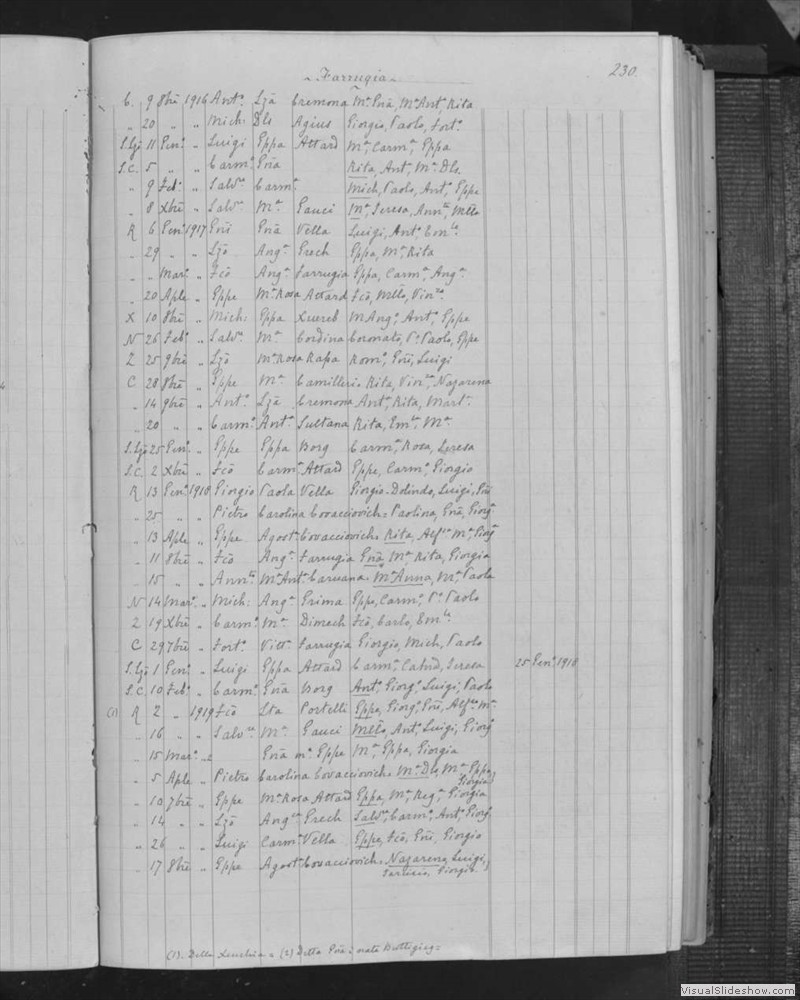 Farrugia
230.
C. 9 8bre 1916 Ant.o Lza Cremona Ma Gna, Ma Ant.a Rita
" 20 " " Mich: Dls Agius Giorgio, Paolo, Fort.o
S.Lzo 11 Gen.o " Luigi Gppa Attard Ma, Carm.a, Gppa
S.C. 5 " " Carm.o Gna Rita, Ant.a Ma Dls.
" 9 Feb.o " Salv.re Carm.a Mich, Paolo, Ant.o, Gppe
" 8 Xbre " Salv.re Ma Gauci Ma, Teresa, Ann.ta
R 6 Gen.o 1917 Gni Gna Vella Luigi, Ant.o Em.le
" 29 " " Lzo Ang.a Grech Gppa, Ma, Rita
" " Mar.o " Fco Ang.a Farrugia Gppa, Carm.a Ang.a
" 20 Aple " Gppe Ma Rosa Attard Fco, Vinc.o
X 10 8bre " Mich: Gppa Xuereb M Ang.o, Ant.o, Gppe
N 26 Feb.o " Salv.re Ma Cordina Coronato, P.o Paolo, Gppe
Z 25 9bre " Lzo Ma Rosa Rapa Rom.o, Gni, Luigi
C 28 8bre " Gppe Ma Camilleri Rita, Vin.a, Nazarena
" 14 9bre " Ant.o Lza Cremona Ant.a, Rita, Mart.a
" 20 " " Carm.o Ant.a Sultana Rita, Em.la, Ma
S.Lzo 25 Gen.o " Gppe Gppa Borg Carm.a, Rosa, Teresa
S.C. 2 Xbre " Fco Carm.a Attard Gppe, Carm.o, Giorgio
R 13 Gen.o 1918 Giorgio Paola Vella Giorgio-Dolindo, Luigi, Gni
" 25 " " Pietro Carolina Covacciovich = Paolina, Gna, Giorg.a
" 13 Aple " Gppe Agost.a Covacciovich = Rita, Ma, Giorg.a
" 11 8bre " Fco Ang.a Farrugia Gna, Ma, Rita, Giorgia
" 15 " " Ann.to Ma Ant.a Caruana Ma Anna, Ma, Paola
N 14 Mar.o " Mich: Ang.a Grima Gppe, Carm.o, P.o Paolo
Z 19 Xbre " Carm.o Ma Dimech Fco, Carlo, Em.le
C 29 7bre " Fort.o Vitt.a Farrugia Giorgio, Mich, Paolo
S.Lzo 1 Gen.o " Luigi Gppa Attard Carm.a, Teresa 25 Gen.o 1918
S.C. 10 Feb.o " Carm.o Gna Borg Ant.o, Giorg.o, Luigi, Paolo
(1) R 2 " 1919 Fco Lta Portelli Gppe, Giorg.o, Gni,
" 16 " " Salv.re Ma Gauci Ant.o, Luigi, Giorg.o
" 15 Mar.o " 2 Gna m.o Gppe Ma, Gppa, Giorgia
" 5 Aple " Pietro Carolina Covacciovich = Ma Dls, Ma, Gppa, Giorgia
" 10 7bre " Gppe Ma Rosa Attard Gppa, Ma, Reg.a, Giorgia
" 14 " " Lzo Ang.a Grech Salv.re, Carm.o, Ant.o, Giorg.o
" 26 " " Luigi Carm.a Vella Gppe, Fco, Gni, Giorgio
" 17 8bre " Gppe Agost.a Covacciovich = Nazareno, Luigi,
Giorgio
(1). Della Xeuchia = (2) Detta Gna: nata Buttigieg =
VisualSlideshow.com